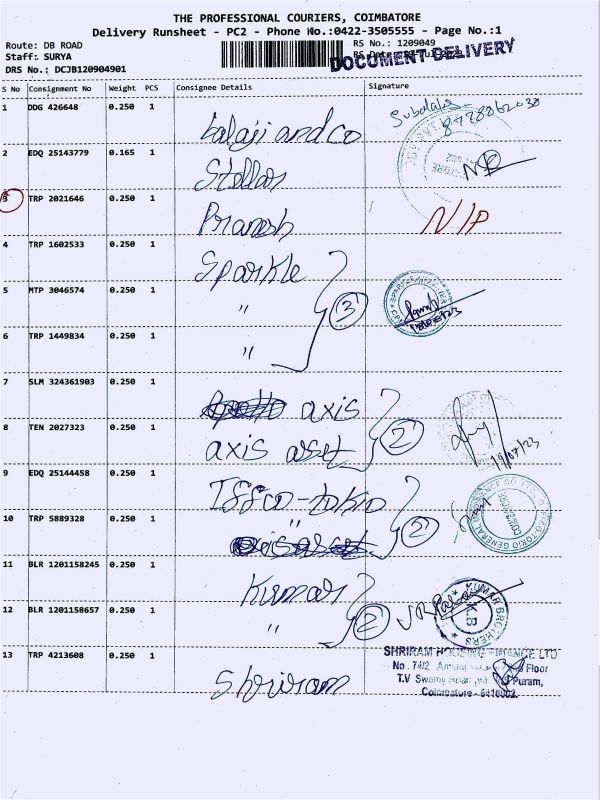 THE PROFESSIONAL COURIERS, COIMBATORE
Delivery Runsheet - PC2 - Phone No.:0422-3505555 - Page No.:1
Route: DB ROAD
RS No.: 1209049
Staff: SURYA
DOCUMENT DELIVERY
DRS No.: DCJB120904901
S No Consignment No Weight PCS Consignee Details Signature
1 DDG 426648 0.250 1 balaji and co
2 EDQ 25143779 0.165 1 Stellar
3 TRP 2021646 0.250 1 Pranesh N/P
4 TRP 1602533 0.250 1 Sparkle
5 MTP 3046574 0.250 1 " 3
6 TRP 1449834 0.250 1 "
7 SLM 324361903 0.250 1 axis
8 TEN 2027323 0.250 1 axis asset 2 19/07/23
9 EDQ 25144458 0.250 1 Iffco-tokio
10 TRP 5889328 0.250 1 " 2 COIMBATORE
11 BLR 1201158245 0.250 1 Kumar
12 BLR 1201158657 0.250 1 " 2 KUMAR BROTHERS K.B
13 TRP 4213608 0.250 1 Shriram
SHRIRAM HOUSING FINANCE LTD
No. 74/2 Floor
T.V Swamy Road Puram,
Coimbatore - 641002.